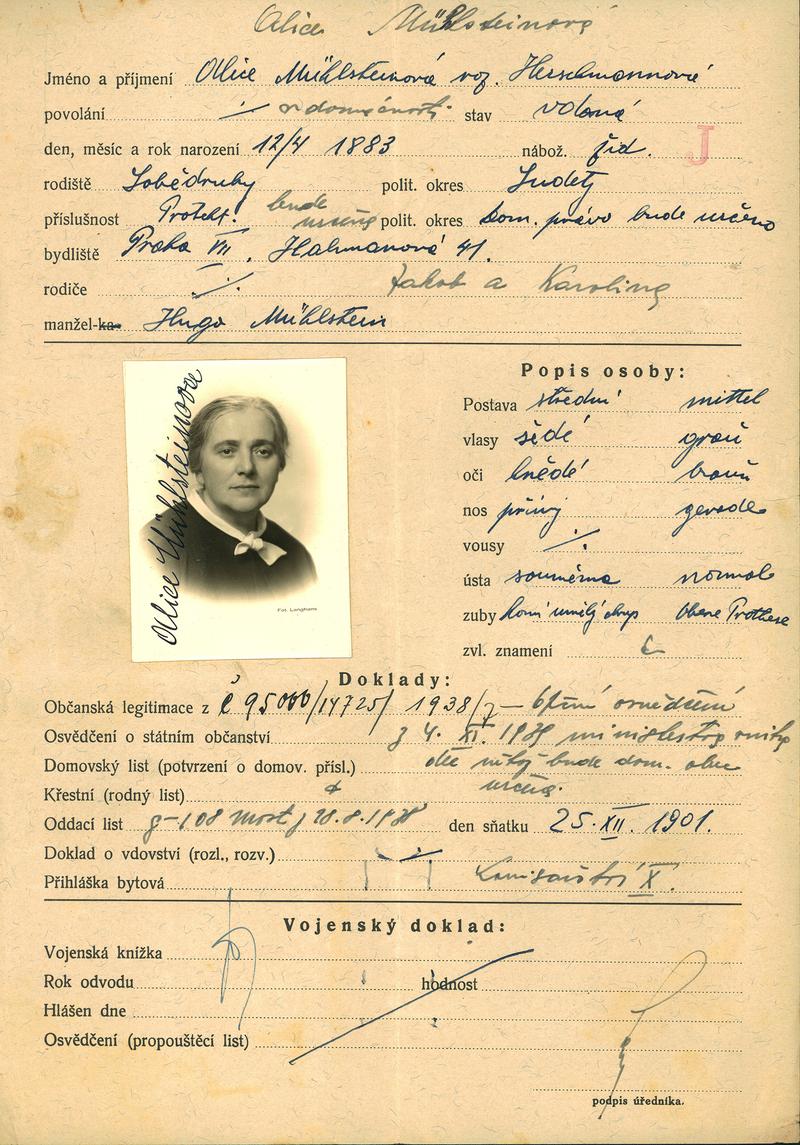 Alice Mühlsteinová
Jméno a příjmení Alice Mühlsteinová roz. Herschmannová
povolání ./. v domácnosti stav vdaná
den, měsíc a rok narození 12/4 1883 nábož. žid. J
rodiště Sobědruhy polit. okres Sudety
příslušnost Protekt. bude určeno polit. okres dom. právo bude určeno
bydliště Praha VII, 41.
rodiče ./. Jakob a Karolina
manžel-ka Hugo Mühlstein
Popis osoby:
Postava střední mittel
vlasy šedé grau
oči hnědé braun
nos přímý gerade
vousy ./.
ústa souměrná normal
zuby Obere Prothese
zvl. znamení
Alice Mühlsteinova
Fot. Langhans
Doklady:
Občanská legitimace z č 95000/14725/ 1938/
Osvědčení o státním občanství z 4. XI. 1939
Domovský list (potvrzení o domov. přísl.) bude dom.
Křestní (rodný list)
Oddací list Most den sňatku 25. XII. 1901.
Doklad o vdovství (rozl., rozv.)
Přihláška bytová X.
Vojenský doklad:
Vojenská knížka
Rok odvodu hodnost
Hlášen dne
Osvědčení (propouštěcí list)
podpis úředníka.